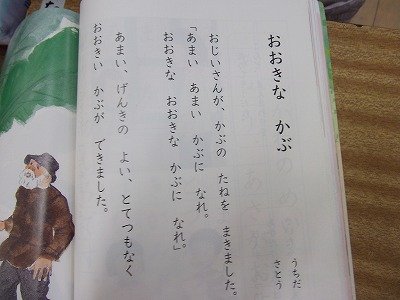 おおきな かぶ
うちだ
さとう
おじいさんが、かぶの たねを まきました。
「あまい あまい かぶに なれ。
おおきな おおきな かぶに なれ」
あまい、げんきの よい、とてつもなく
おおきい かぶが できました。